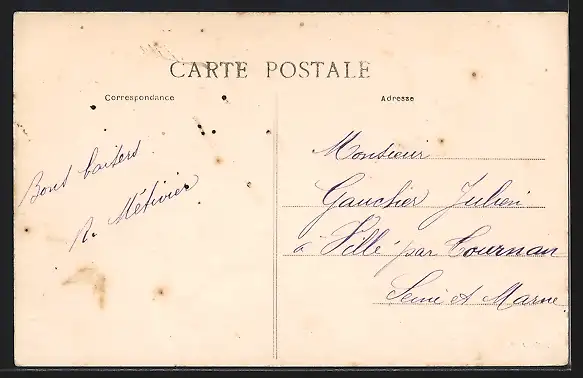 CARTE POSTALE
Correspondance
Adresse
Bons baisers
R. Métivier
Monsieur
Gauchier Julien
à Villé par Tournan
Seine et Marne